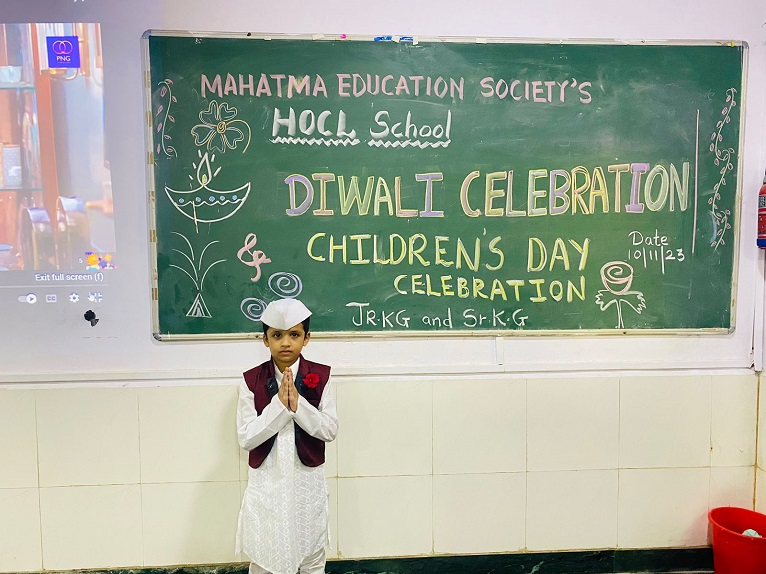 PNG
Exit full screen (f)
MAHATMA EDUCATION SOCIETY'S
HOCL School
DIWALI CELEBRATION
&
CHILDREN'S DAY
CELEBRATION
Date
10/11/23
JR.KG and Sr.K.G